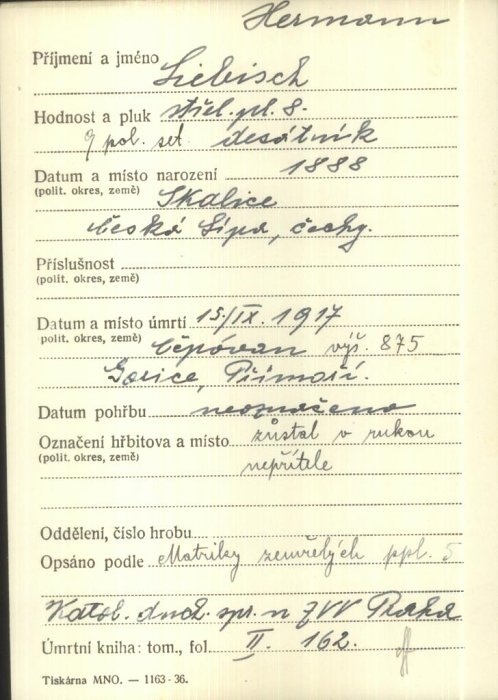 Hermann
Příjmení a jméno Liebisch
Hodnost a pluk střel. pl. 8.
9 pol. set. desátník
Datum a místo narození 1888
(polit. okres, země) Skalice
Česká Lípa, Čechy.
Příslušnost
(polit. okres, země)
Datum a místo úmrtí 15/IX. 1917
(polit. okres, země) Čépovan výš. 875
Gorice, Přímoří.
Datum pohřbu neoznačeno
Označení hřbitova a místo zůstal v rukou
(polit. okres, země) nepřítele
Oddělení, číslo hrobu
Opsáno podle Matriky zemřelých ppl. 5
Katol. duch. spr. n ZVV Praha
Úmrtní kniha: tom., fol. II. 162.
Tiskárna MNO. — 1163-36.